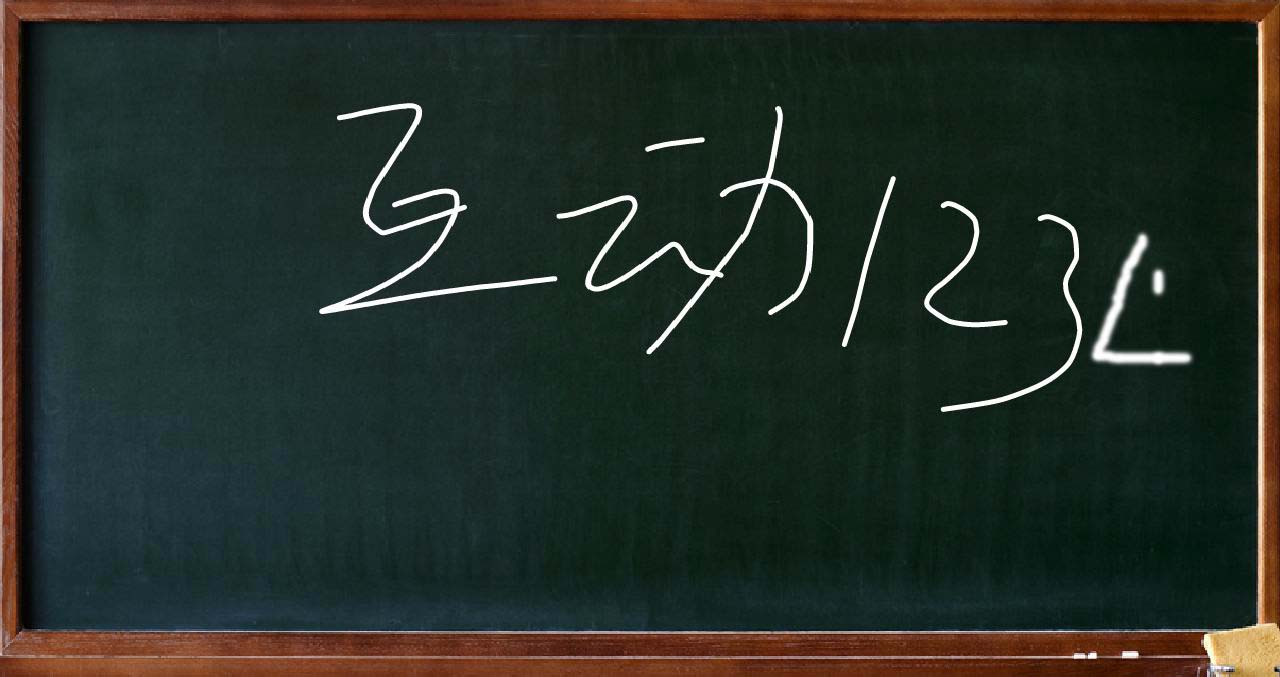 互动123